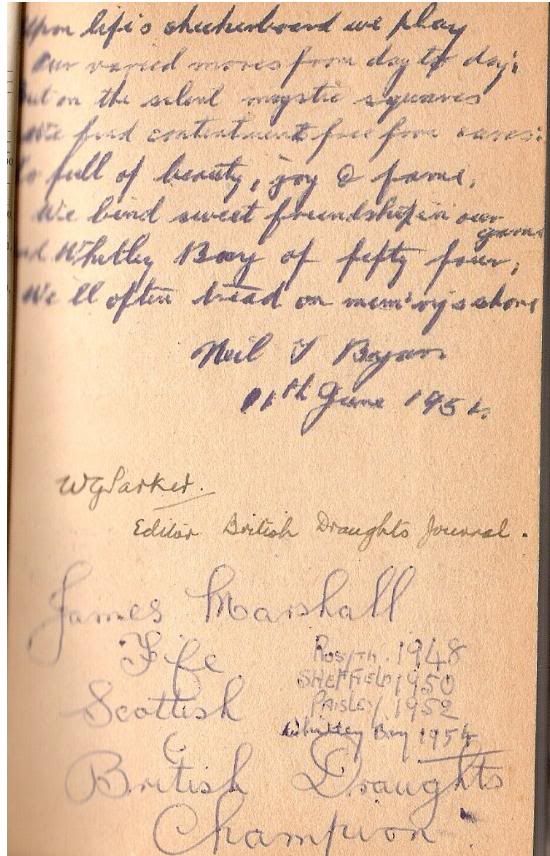 Upon life's checkerboard we play
Our varied moves from day to day;
But on the silent mystic squares
We find contentment free from cares:
So full of beauty, joy & fame,
We bind sweet friendship in our game
And Whitley Bay of fifty four,
We'll often tread on mem'ry's shore
Neil
11th June 1954.
WG Parker.
Editor British Draughts Journal.
James Marshall
Fife
ROSYTH. 1948
SHEFFIELD 1950
Scottish
PAISLEY 1952
Whitley Bay 1954
British Draughts
Champion